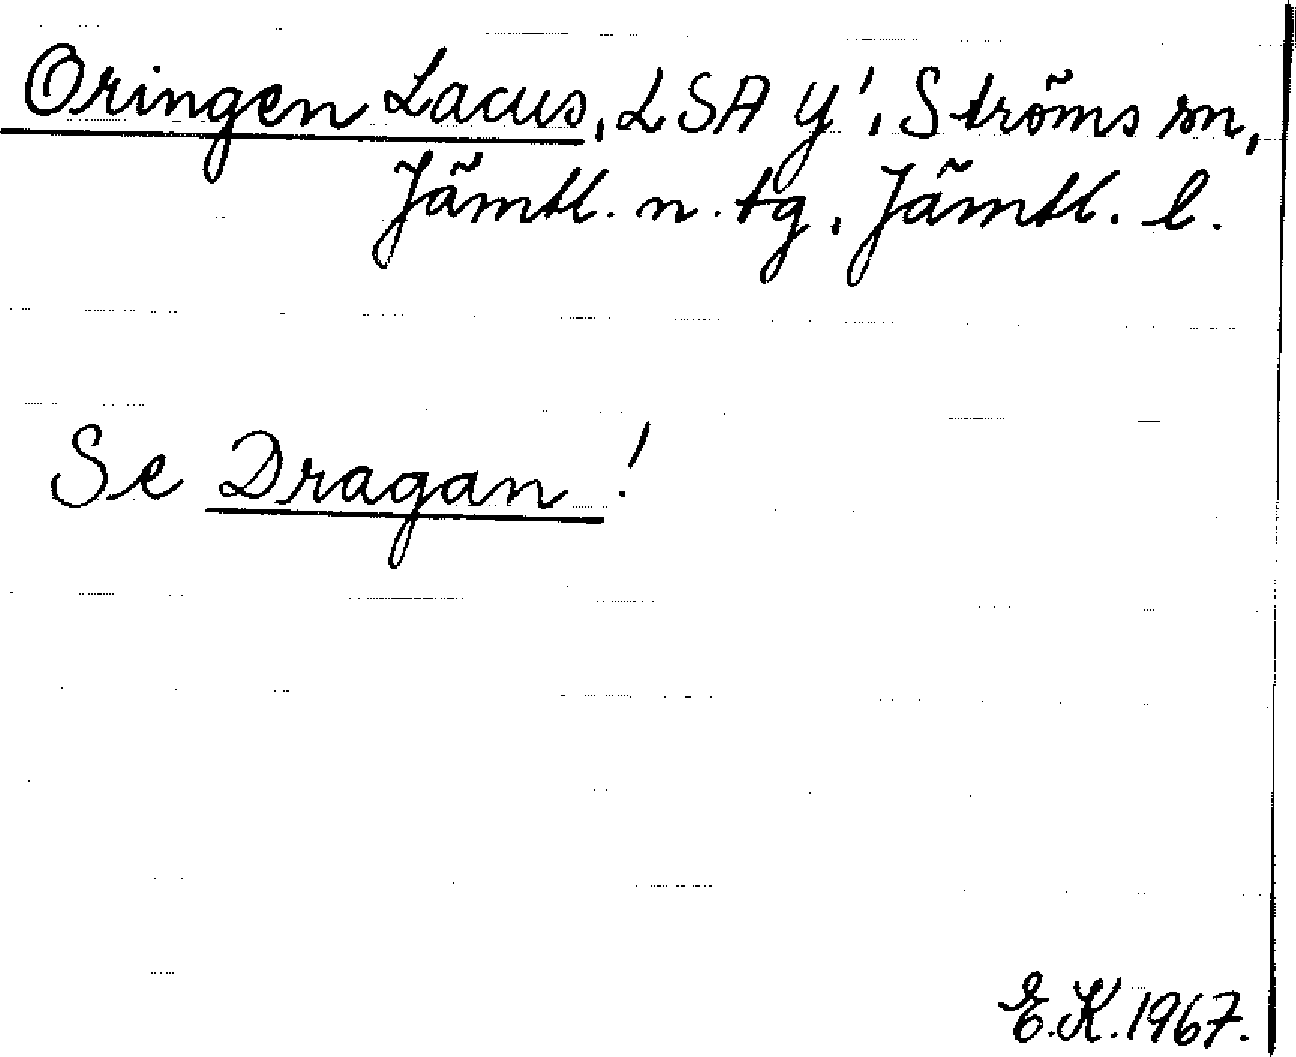 Oringen Lacus, LSA Y', Ströms sn,
Jämtl. n. tg, Jämtl. l.
Se Dragan !
E.K. 1967.